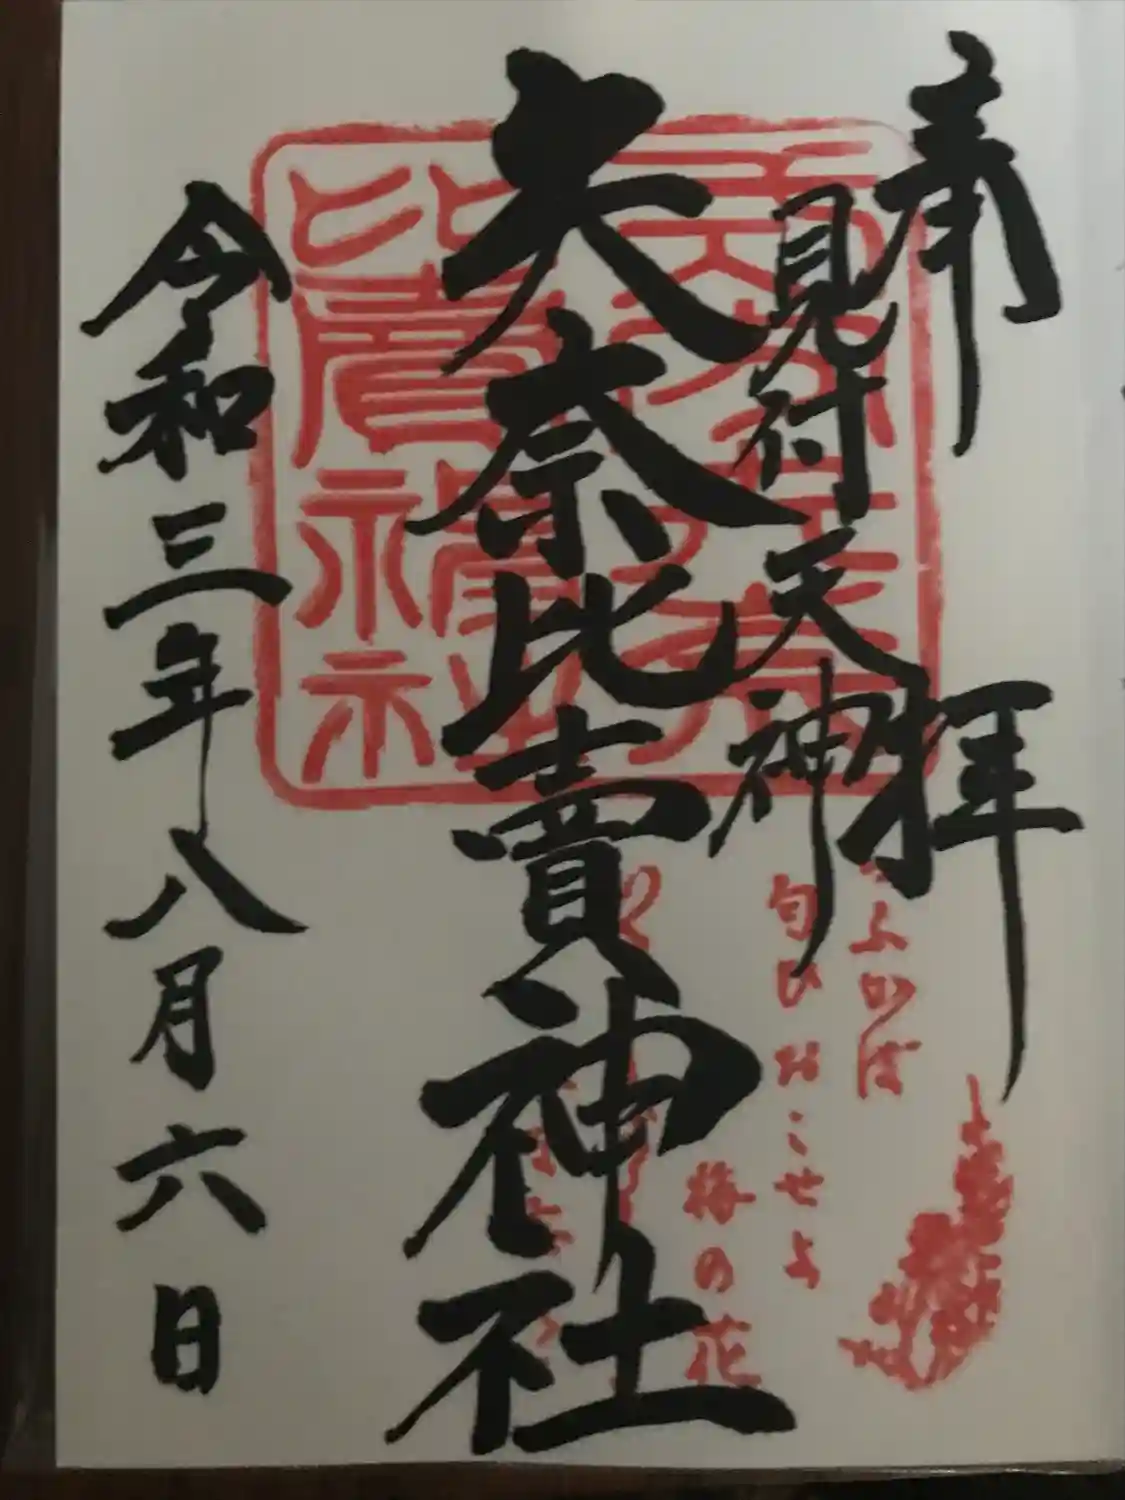 奉拝
見付天神
矢奈比賣神社
令和三年八月六日
ふかば
匂ひおこせよ
梅の花